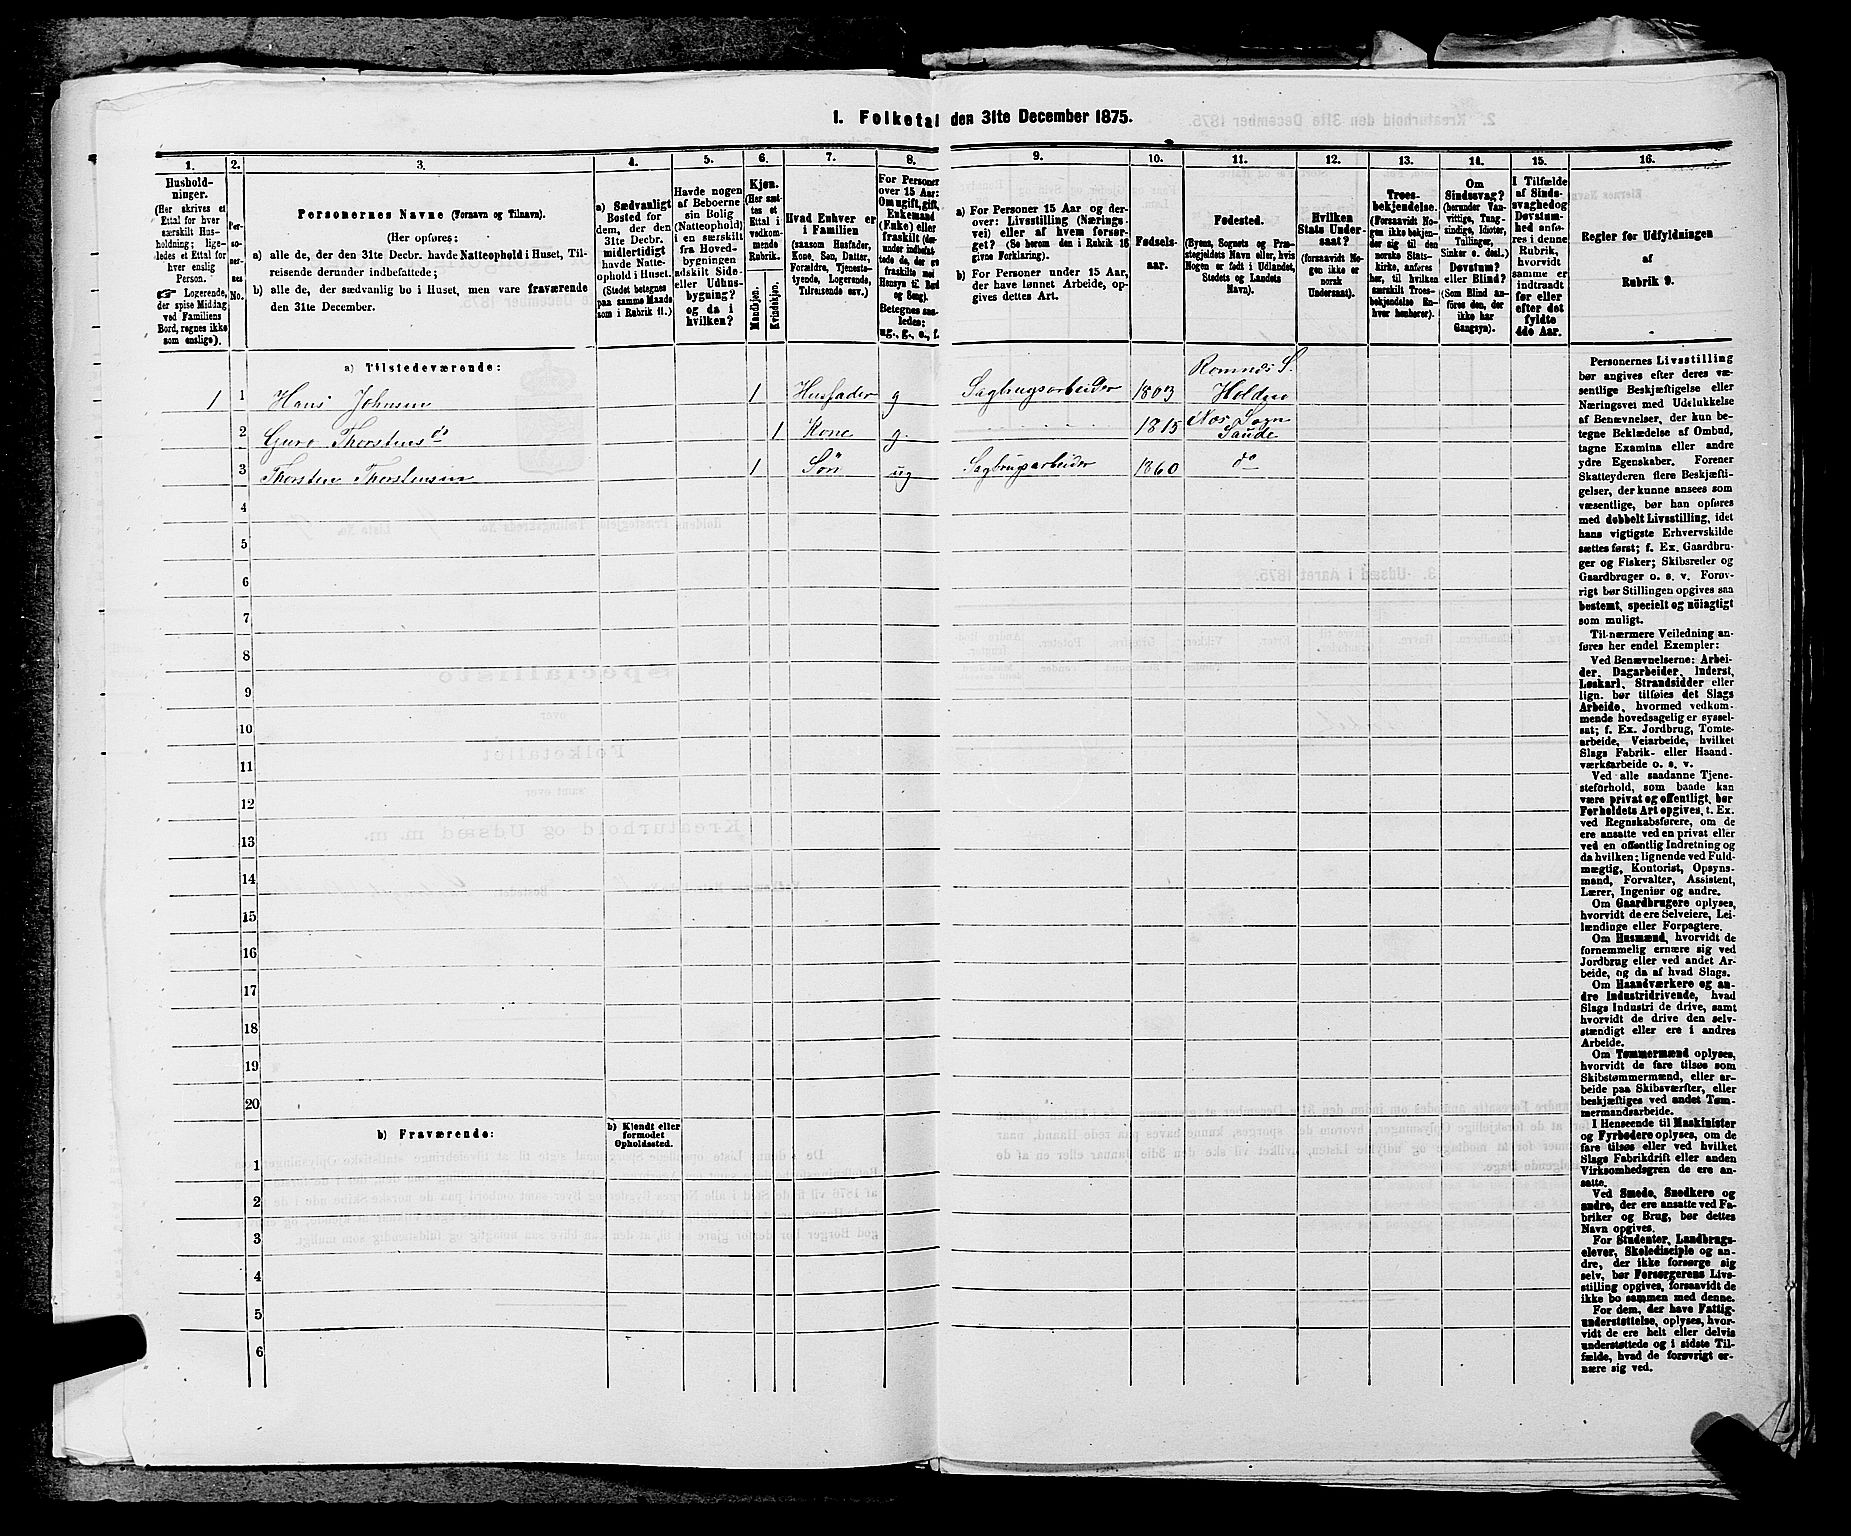 1. Folketal den 31te December 1875.
1.
Hushold-
ninger.
(Her skrives et
Ettal for hver
særskilt Hus-
holdning; lige-
ledes et Ettal for
hver enslig
Person.
☞ Logerende,
der spise Middag
ved Familiens
Bord, regnes ikke
som enslige).
2.
Per-
so-
ner-
nes
No.
3.
Personernes Navne (Fornavn og Tilnavn).
(Her opføres:
a) alle de, der den 31te Decbr. havde Natteophold i Huset, Til-
reisende derunder indbefattede;
b) alle de, der sædvanlig bo i Huset, men vare fraværende
den 31te December.
4.
a) Sædvanligt
Bosted for
dem, der den
31te Decbr.
midlertidigt
havde Natte-
ophold i Huset.
(Stedet betegnes
paa samme Maade
som i Rubrik 11.)
5.
Havde nogen
af Beboerne
sin Bolig
(Natteophold)
i en særskilt
fra Hoved-
bygningen
adskilt Side-
eller Udhus-
bygning?
og da i
hvilken?
6.
Kjøn.
(Her sæt-
tes et
Ettal i
vedkom-
mende
Rubrik.
Mandkjøn.
Kvindekjøn.
7.
Hvad Enhver er
i Familien
(saasom Husfader,
Kone, Søn, Datter,
Forældre, Tjeneste-
tyende, Logerende,
Tilreisende osv.)
8.
For Personer
over 15 Aar:
Om ugift, gift,
Enkemand
(Enke) eller
fraskilt (der-
under indbefat-
tede de, der ere
fraskilte med
Hensyn til Bord
og Seng).
Betegnes saa-
ledes:
ug., g., e., f.
9.
a) For Personer 15 Aar og der-
over: Livsstilling (Nærings-
vei) eller af hvem forsør-
get? (Se herom den i Rubrik 16
givne Forklaring).
b) For Personer under 15 Aar,
der have lønnet Arbeide, op-
gives dettes Art.
10.
Fødsels-
aar.
11.
Fødested.
(Byens, Sognets og Præ-
stegjeldets Navn eller, hvis
Nogen er født i Udlandet,
Stedets og Landets
Navn).
12.
Hvilken
Stats Under-
saat?
(forsaavidt No-
gen ikke er
norsk
Undersaat).
13.
Troes-
bekjendelse.
(Forsaavidt No-
gen ikke bekjen-
der sig til den
norske Stats-
kirke, anføres
her, til hvilken
særskilt Troes-
bekjendelse En-
hver henhører).
14.
Om
Sindssvag?
(herunder Van-
vittige, Tung-
sindige, Idioter,
Tullinger,
Sinker o. desl.)
Døvstum?
eller Blind?
(Som Blind an-
føres den, der
ikke har
Gangsyn).
15.
I Tilfælde
af Sinds-
svaghed og
Døvstum-
hed anfø-
res i denne
Rubrik,
hvorvidt
samme er
indtraadt
før eller
efter det
fyldte
4de Aar.
16.
Regler for Udfyldningen
af
Rubrik 9.
a) Tilstedeværende:
Romnæs S.
1 1 Hans Johnsen 1 Husfader g Sagbrugsarbeider 1803 Holden
2 Guro Thorstens d° 1 Kone g. 1815 Næs Sogn
Saude
3 Thorsten Thorstensen 1 Søn ug Sagbrugsarbeider 1860 d°
4
5
6
7
8
9
10
11
12
13
14
15
16
17
18
19
20
b) Fraværende:
b) Kjendt eller
formodet
Opholdssted.
1
2
3
4
5
6
Personernes Livsstilling
bør angives efter deres væ-
sentlige Beskjæftigelse eller
Næringsvei med Udelukkelse
af Benævnelser, der kun be-
tegne Bekladelse af Ombud,
tagne Examina eller andre
ydre Egenskaber. Forener
Skatteyderen flere Beskjæfti-
gelser, der kunne ansees som
væsentlige, bør han opføres
med dobbelt Livsstilling, idet
hans vigtigste Erhvervskilde
sættes først; f. Ex. Gaardbru-
ger og Fisker; Skibsreder og
Gaardbruger o. s. v. Forøv-
rigt bør Stillingen opgives saa
bestemt, specielt og nöiagtigt
som muligt.
Til nærmere Veiledning an-
føres her endel Exempler:
Ved Benævnelserne: Arbei-
der, Dagarbeider, Inderst,
Løskarl, Strandsidder eller
lign. bør tilføies det Slags
Arbeide, hvormed vedkom-
mende hovedsagelig er syssel-
sat; f. Ex. Jordbrug, Tomte-
arbeide, Veiarbeide, hvilket
Slags Fabrik- eller Haand-
værksarbeide o. s. v.
Ved alle saadanne Tjene-
steforhold, som baade kan
være privat og offentligt, bør
Forholdets Art opgives, t. Ex.
ved Regnskabsførere, om de
ere ansatte ved en privat eller
ved en offentlig Indretning og
da hvilken; lignende ved Fuld-
mægtig, Kontorist, Opsyns-
mand, Forvalter, Assistent,
Lærer, Ingeniør og andre.
Om Gaardbrugere oplyses,
hvorvidt de ere Selveiere, Lei-
lændinge eller Forpagtere.
Om Husmænd, hvorvidt de
fornemmelig ernære sig ved
Jordbrug eller ved andet Ar-
beide, og da af hvad Slags.
Om Haandværkere og an-
dre Industridrivende, hvad
Slags Industri de drive, samt
hvorvidt de drive den selv-
stændigt eller ere i andres
Arbeide.
Om Tømmermænd oplyses,
hvorvidt de fare tilsøs som
Skibstømmermænd, eller ar-
beide paa Skibsværfter, eller
beskjæftiges ved andet Tøm-
mermandsarbeide.
I Henseende til Maskinister
og Fyrbødere oplyses, om de
fare tilsøs eller ved hvilket
Slags Fabrikdrift eller anden
Virksomhedsgren de ere an-
satte.
Ved Smede, Snedkere og
andre, der ere ansatte ved Fa-
briker og Brug, bør dettes
Navn opgives.
For Studenter, Landbrugs-
elever, Skoledisciple og an-
dre, der ikke forsørge sig
selv, bør Forsørgerens Livs-
stilling opgives, forsaavidt de
ikke bo sammen med denne.
For dem, der have Fattig-
understøttelse, oplyses, hvor-
vidt de ere helt eller delvis
understøttede og i sidste Til-
fælde, hvad de forøvrigt er-
nære sig ved.